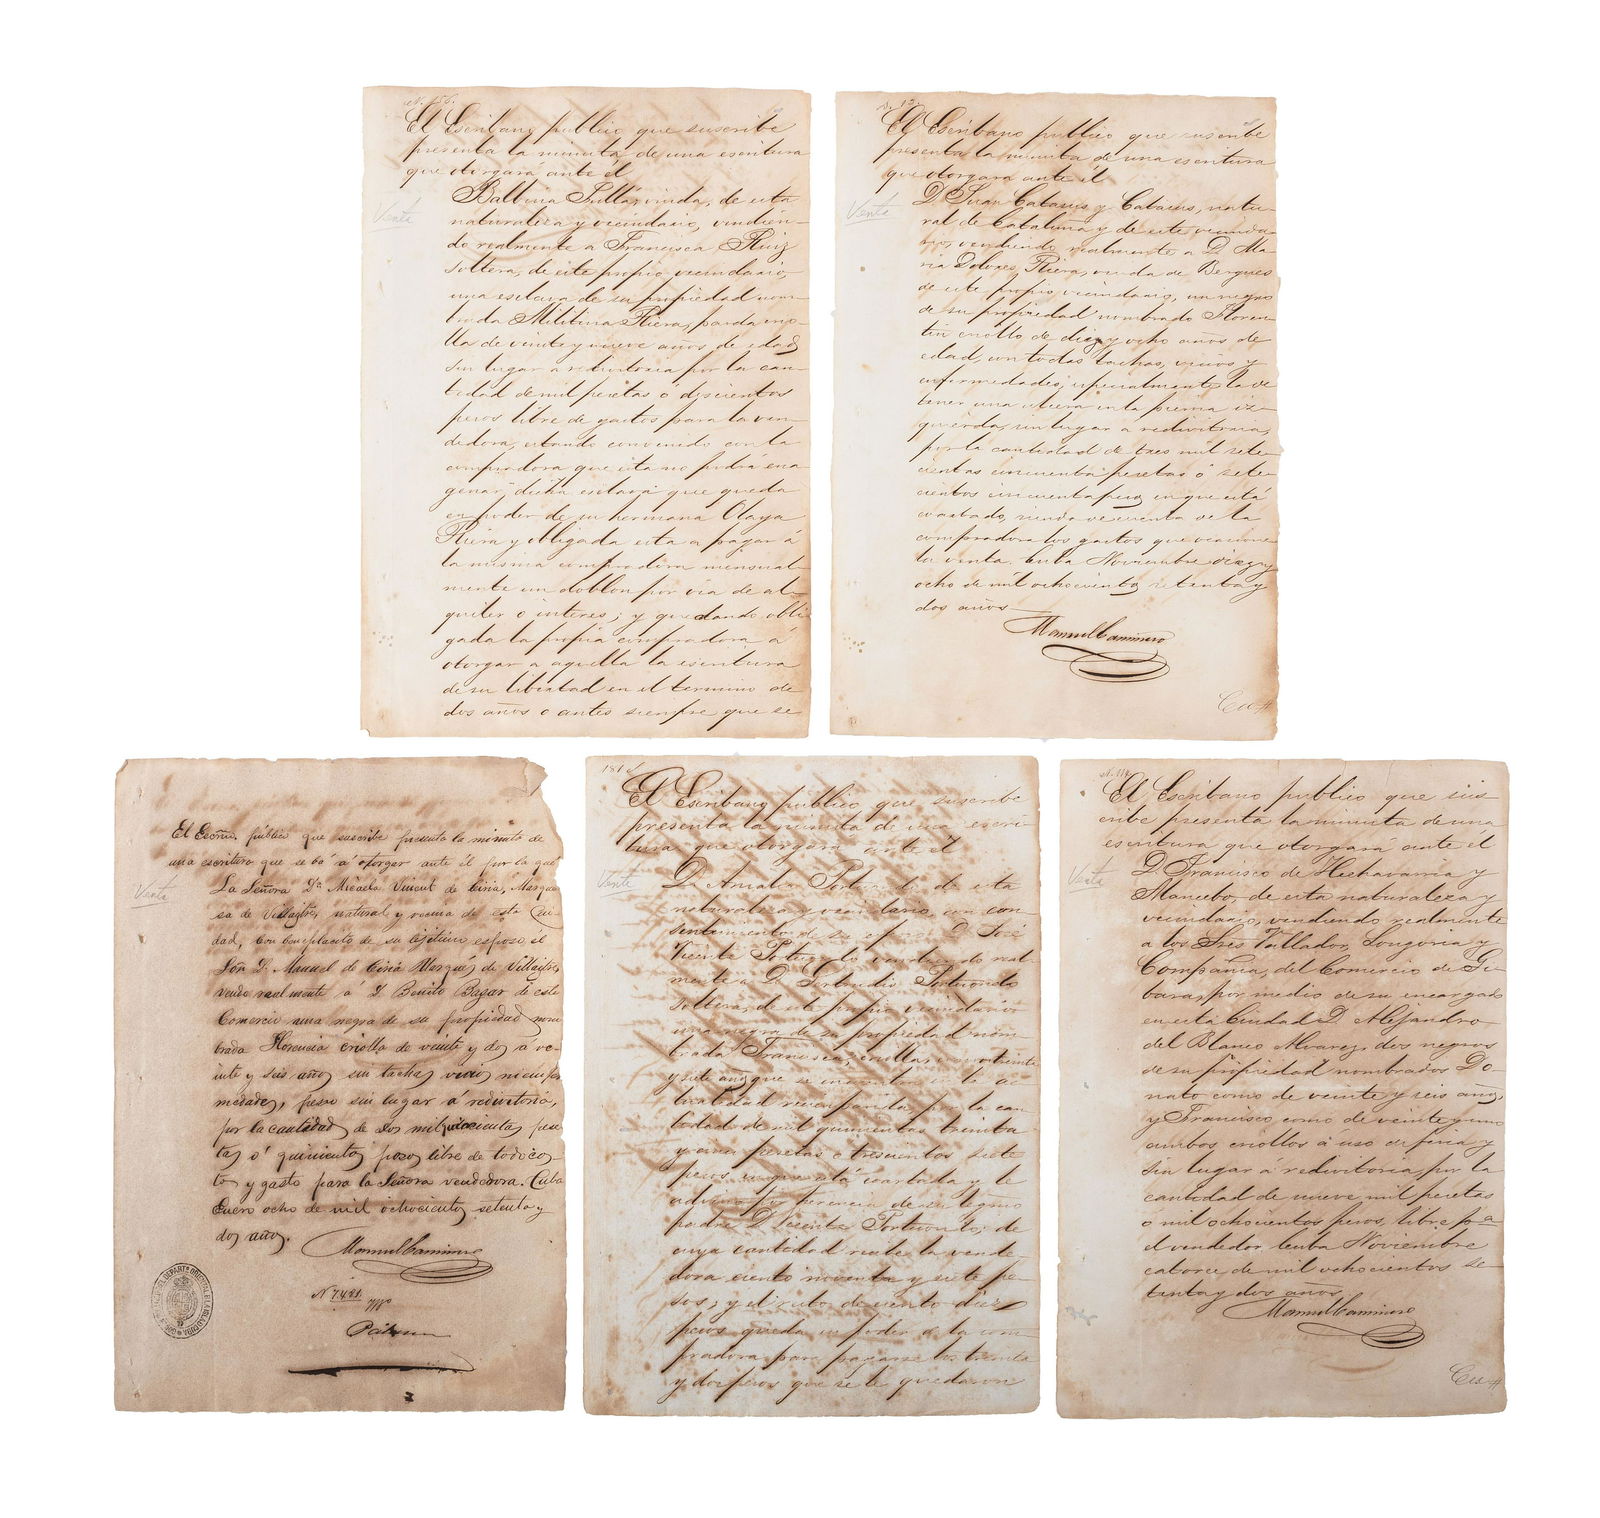 N. 156.
El Escribano publico que suscribe
presenta la minuta de una escritura
que otorgara ante él
Venta
Balbina Pullás, viuda, de esta
naturaleza y vecindario, vendien-
do realmente a Francisca Ruiz
soltera, de este propio vecindario,
una esclava de su propiedad nom-
brada Militina Riera, parda crio-
lla de veinte y nueve años de edad
sin lugar a redivitoria por la can-
tidad de mil pesetas ó doscientos
pesos libre de gastos para la ven-
dedora, estando convenido con la
compradora que esta no podrá ena-
genar dicha esclava que queda
en poder de su hermana Olaya
Riera y obligada esta a pagar á
la misma compradora mensual-
mente un doblon por via de al-
quiler o interes; y quedando obli-
gada la propia compradora á
otorgar a aquella la escritura
de su libertad en el termino de
dos años o antes siempre que se
El Escribano publico que suscribe
presenta la minuta de una escritura
que otorgara ante él
Venta
D. Juan Catasus y Catasus, natu-
ral de Cataluña y de este vecinda-
rio, vendiendo realmente a Dª Ma-
ria Dolores Riera, viuda de Bergues
de este propio vecindario, un negro
de su propiedad nombrado Floren-
tin criollo de diez y ocho años de
edad, con todas tachas, vicios y
enfermedades, especialmente la de
tener una ulcera en la pierna iz-
quierda, sin lugar a redivitoria,
por la cantidad de tres mil sete-
cientas cincuenta pesetas ó sete-
cientos cincuenta pesos en que está
coartado, siendo de cuenta de la
compradora los gastos que ocasione
la venta. Cuba Noviembre diez y
ocho de mil ochocientos setenta y
dos años
Manuel Caminero
El Escño. público que suscribe presenta la minuta de
una escritura que se bá á otorgar ante él por la que
Venta
La Señora Dª Micaela Vincent de Ciria, Marque-
sa de Villaitre, natural y vecina de esta Ciu-
dad, con complacito de su lejitimo esposo, el
Sor. D. Manuel de Ciria Marqués de Villaitre,
vende realmente á D. Benito Bagar de este
Comercio una negra de su propiedad nom
brada Florencia criolla de veinte y dos á ve-
inte y seis años sin tachas vicios ni enfer
medades, pero sin lugar á redivitoria,
por la cantidad de dos mil quinientas pese
tas ó quinientos pesos libre de todo cos-
to y gasto para la Señora vendedora. Cuba
Enero ocho de mil ochocientos setenta y
dos años.
Manuel Caminero
N 7481
El Escribano público que suscribe
presenta la minuta de una escri-
tura que otorgará ante él
Venta
Dª Amalia Portuondo de esta
naturaleza y vecindario, con con-
sentimiento de su esposo D. José
Vicente Portuondo vendiendo real-
mente a Dª Gertrudis Portuondo
soltera, de este propio vecindario
una negra de su propiedad nom-
brada Francisca, criolla, como de veinte
y siete años que se encuentra en la ac-
tualidad recien parida por la can-
tidad de mil quinientas treinta
y cinco pesetas o trescientos siete
pesos en que está coartada y le
advino por herencia de su legmo
padre D. Vicente Portuondo; de
cuya cantidad recibe la vende-
dora ciento noventa y siete pe-
sos; y el resto de ciento diez
pesos queda en poder de la com-
pradora para pagarse los treinta
y dos pesos que se le quedaron
El Escribano publico que sus-
cribe presenta la minuta de una
escritura que otorgará ante él
Venta
D. Francisco de Hechavarria y
Mancebo, de esta naturaleza y
vecindario, vendiendo realmente
a los Sres Vallador, Longoria y
Compañia, del Comercio de Gi-
bara, por medio de su encargado
en esta Ciudad D. Alejandro
del Blanco Alvarez, dos negros
de su propiedad nombrados Do-
nato como de veinte y seis años,
y Francisco como de veinte y uno
ambos criollos á uso de feria y
sin lugar á redivitoria, por la
cantidad de nueve mil pesetas
ó mil ochocientos pesos, libre pa
el vendedor. Cuba Noviembre
catorce de mil ochocientos se-
tenta y dos años.
Manuel Caminero